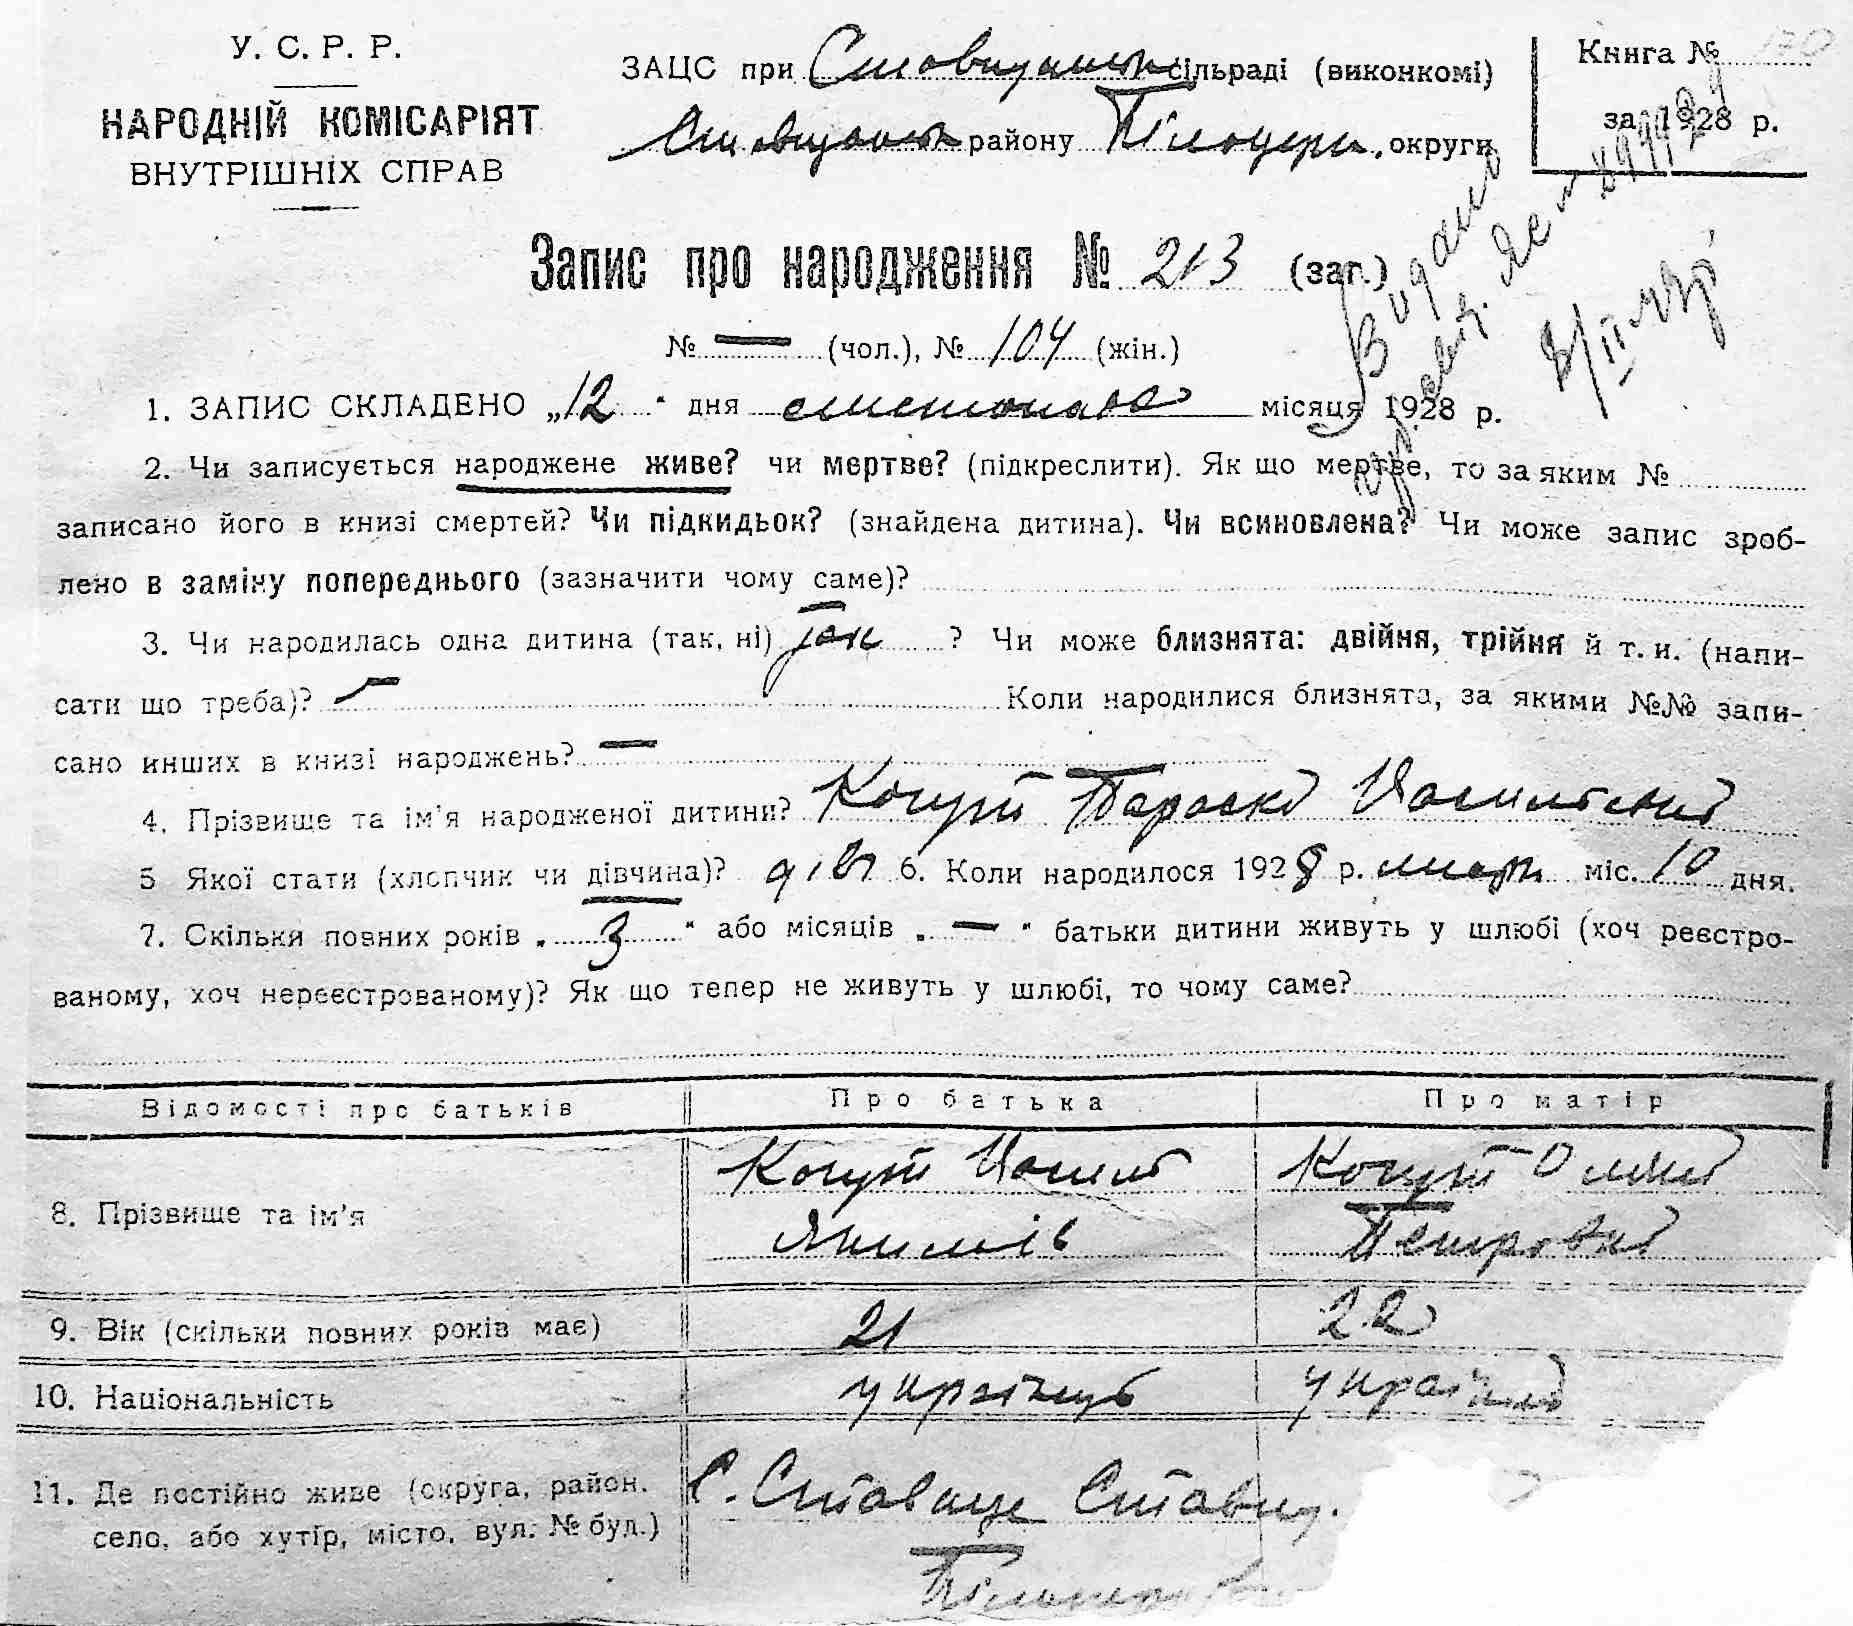 У. С. Р. Р.
НАРОДНІЙ КОМІСАРІЯТ
ВНУТРІШНІХ СПРАВ
ЗАЦС при Ставищанськ сільраді (виконкомі)
Ставищанськ району Білоцерк. округи
Книга № 170
за 1928 р.
Запис про народження № 213 (заг.)
№ — (чол.), № 104 (жін.)
Видано
1. ЗАПИС СКЛАДЕНО „12 “ дня листопада місяця 1928 р.
2. Чи записується народжене живе? чи мертве? (підкреслити). Як що мертве, то за яким №
записано його в книзі смертей? Чи підкидьок? (знайдена дитина). Чи всиновлена? Чи може запис зроб-
лено в заміну попереднього (зазначити чому саме)?
3. Чи народилась одна дитина (так, ні) так ? Чи може близнята: двійня, трійня й т. и. (напи-
сати що треба)? — Коли народилися близнята, за якими №№ запи-
сано инших в книзі народжень? —
4. Прізвище та ім'я народженої дитини? Когут Параска Василівна
5 Якої стати (хлопчик чи дівчина)? дівч 6. Коли народилося 1928 р. листоп. міс. 10 дня.
7. Скільки повних років „ 3 “ або місяців „ — “ батьки дитини живуть у шлюбі (хоч реєстро-
ваному, хоч нереєстрованому)? Як що тепер не живуть у шлюбі, то чому саме?
Відомості про батьків Про батька Про матір
8. Прізвище та ім'я Когут Василь Когут Оляна
Якимів Петровна
9. Вік (скільки повних років має) 21 22
10. Національність українець українка
11. Де постійно живе (округа, район.
село, або хутір, місто, вул. № буд.)
С. Ставище Ставищ.